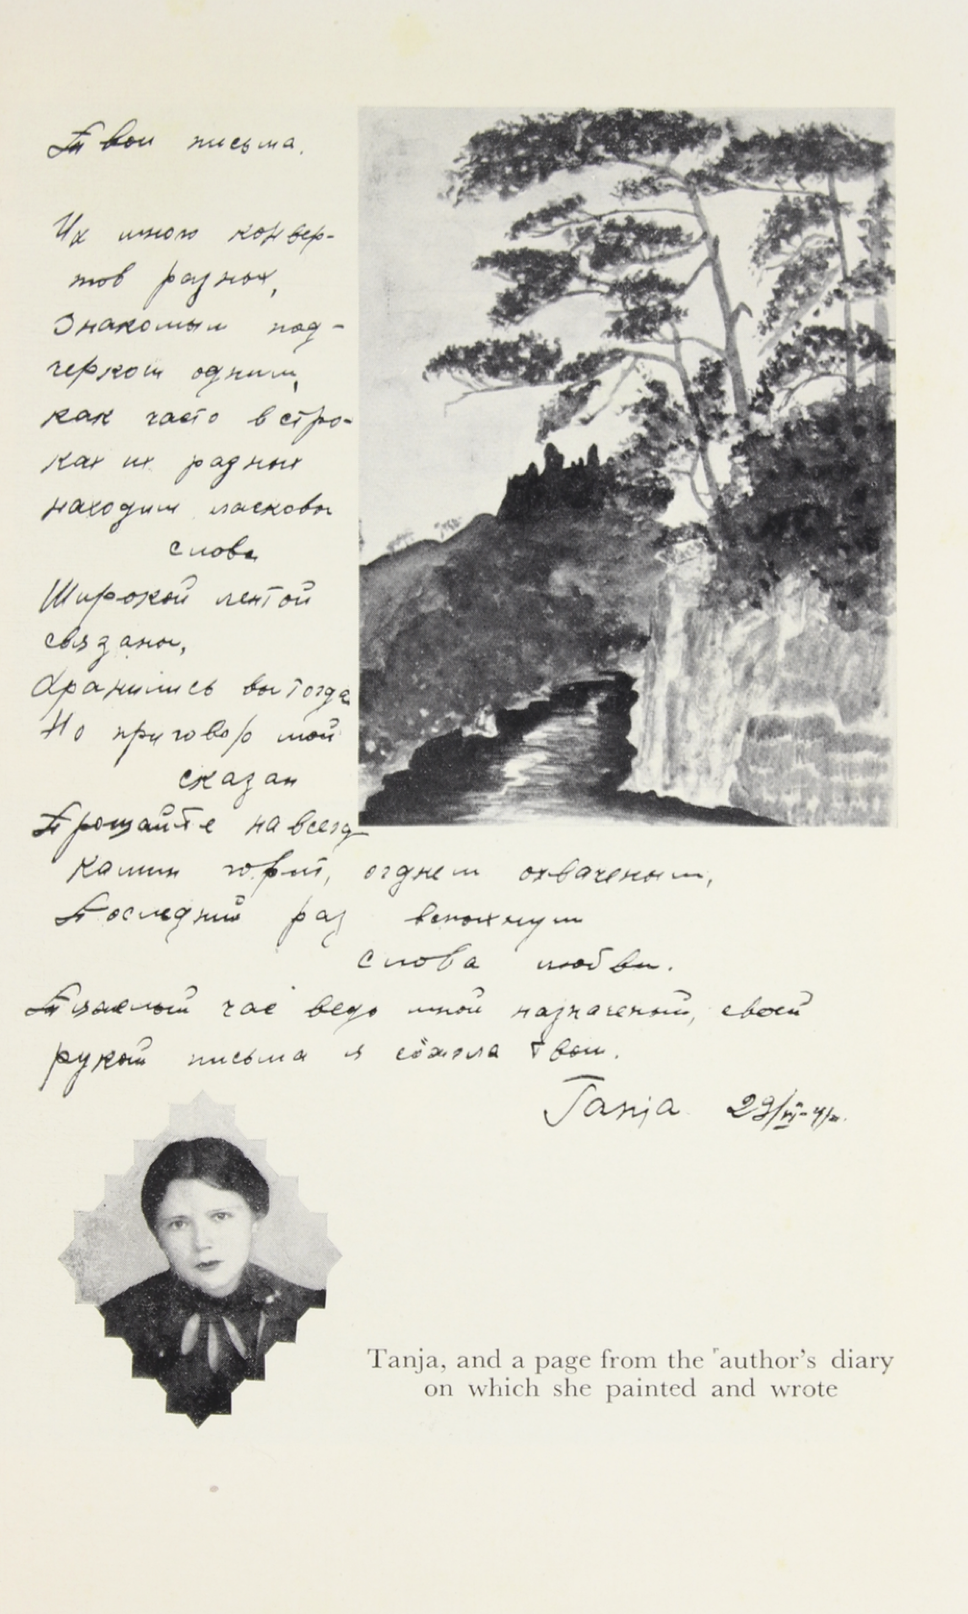 Твои письма.
Их много конвер-
тов разных,
Знакомым под-
черком одним,
как часто в стро-
ках их разных
находим ласковы
слова
Широкой лентой
связаны,
Хранились вы тогда
Но приговор мой
сказан
Прощайте навсегд
Камин горит, огднем охваченым,
Последний раз вспыхнули
слова любви.
Тяжелый час ведь мной назначеный, своей
рукой письма я сожгла твои.
Tanja 29/VI-41
Tanja, and a page from the author's diary
on which she painted and wrote